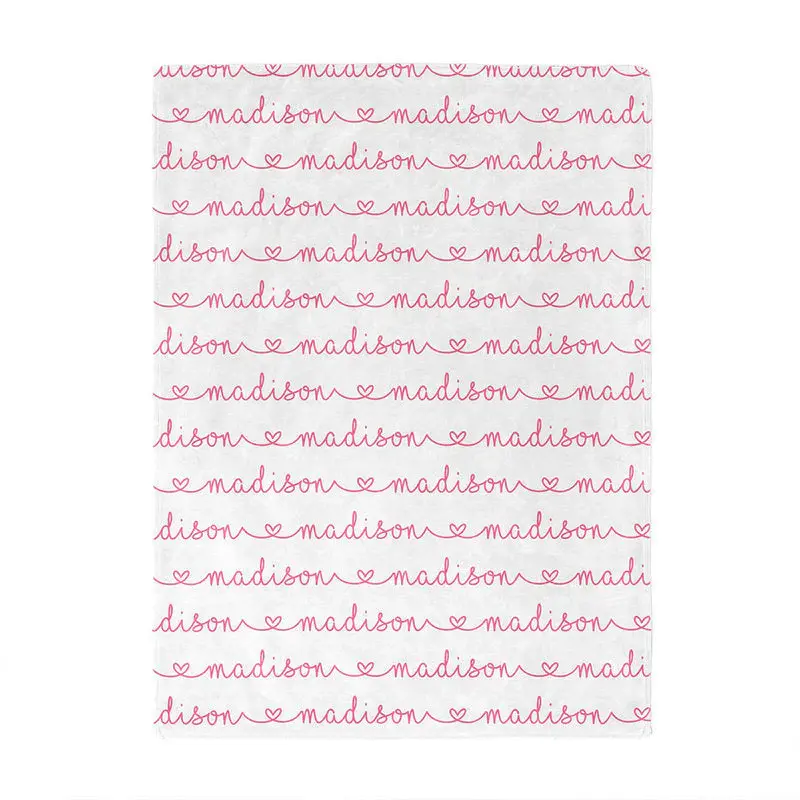 madison madison madison
madison madison madi
dison madison madison
madison madison madi
dison madison madison
madison madison madi
dison madison madison
madison madison madi
dison madison madison
madison madison madi
dison madison madison
madison madison madi
dison madison madison
madison madison madi
dison madison madison